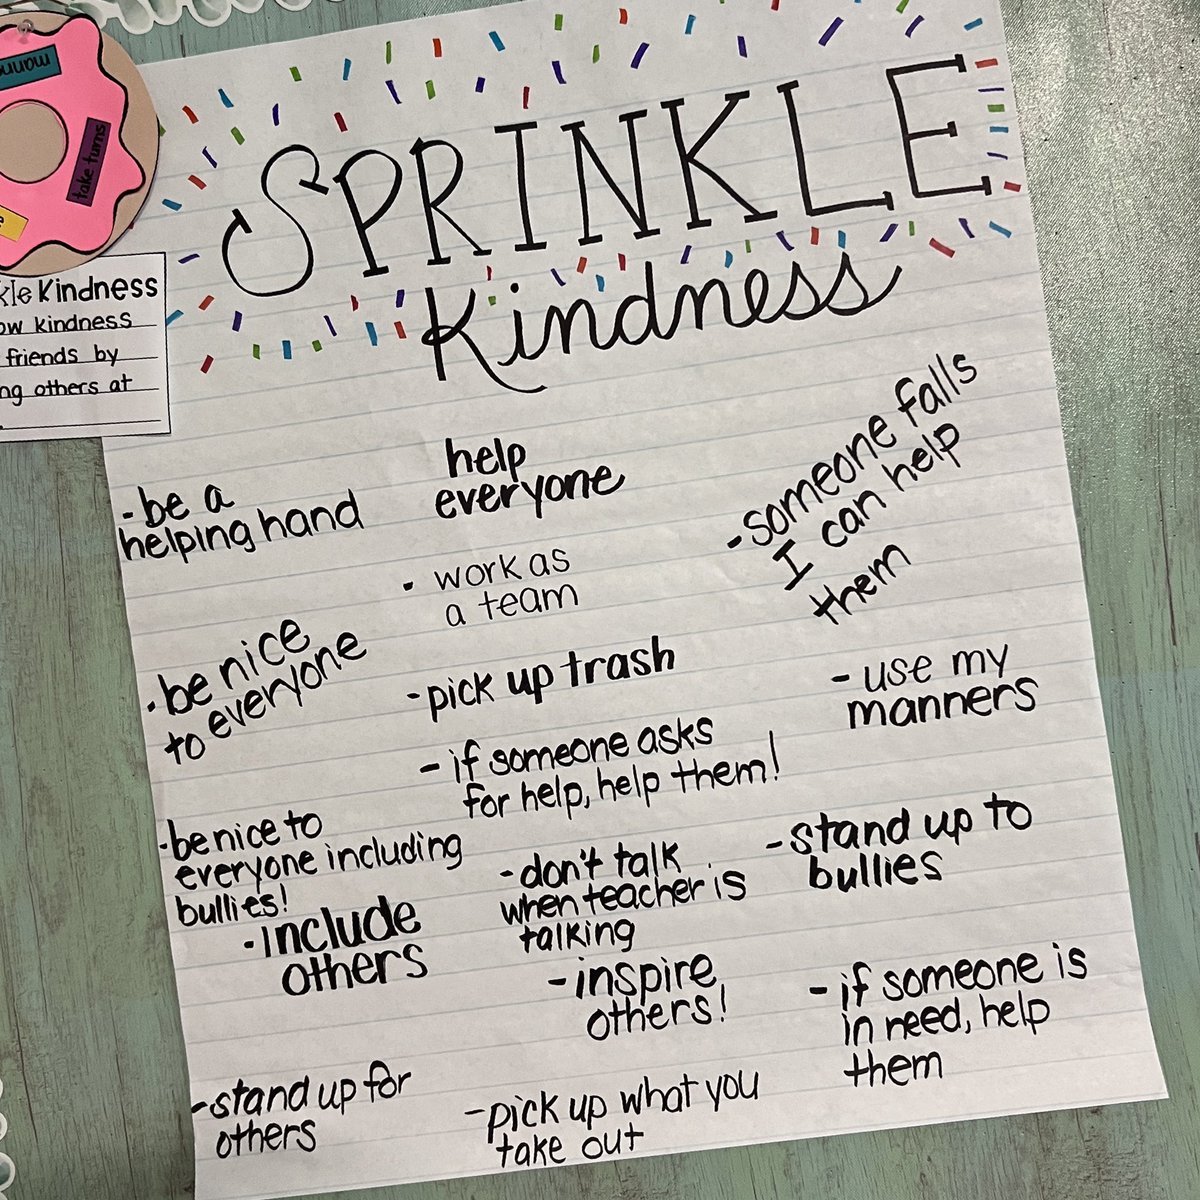 take turns
kle Kindness
ow kindness
friends by
ng others at
SPRINKLE
Kindness
- be a
helping hand
help
everyone
- someone falls
I can help
them
· work as
a team
· be nice
to everyone
- pick up trash
- use my
manners
- if someone asks
for help, help them!
- be nice to
everyone including
bullies!
- don't talk
when teacher is
talking
- stand up to
bullies
- include
others
- inspire
others!
- if someone is
in need, help
them
- stand up for
others
- pick up what you
take out